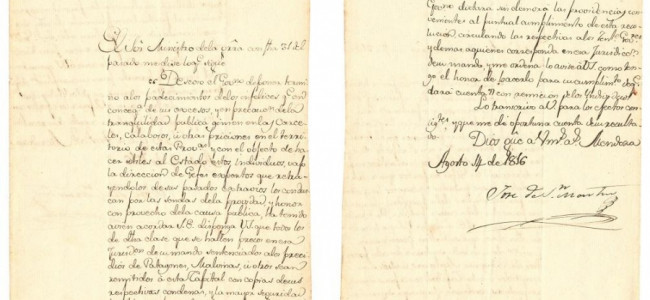 El Sōr Ministro dela grā con fħa 21 del
pasado me dice lo q.e sigue
"Deseoso el Gov.no de poner termi
no alos padecimientos delos infelices q.e en
de sus excesos, y en precaucion dela
tranquilidad publica gimen en las Carce
les, calabozos, ù otras priciones en el terri
torio de estas Prov.s y con el objecto de ha
cer utiles al Estado estos individuos, vajo
la direccion de Gefes expertos que retra
yendolos de sus pasados extravios los conduz
can por las sendas de la provida y honor
con provecho dela causa publica, ha teni
avien acordar S.E. disponga V.S. que todos los
de dha clase que se hallen presos en esa
Juris.on de su mando sentenciados alos presi
dios de Patagones, Malvinas, ù otros sean
remitidos à esta Capital con copias de sus
respectivas condenas, y la mayor seguridad
declara su
nientes al puntual cumplimiento de esta reso
lucion, circulando las respectivas alos
y demas aquienes corresponda en esa
de su mando y me ordena lo avise à V.S. como ten
go el honor de hacerlo para su cumplim.to
dará cuenta
Lo transcrivo à V. para los efectos con
sig.tes y que me de oportuna cuenta de su resulta
do.
Dios gūe à V. m.s a.s Mendoza
Agosto 14 de 1816
Jose de S.n Martin